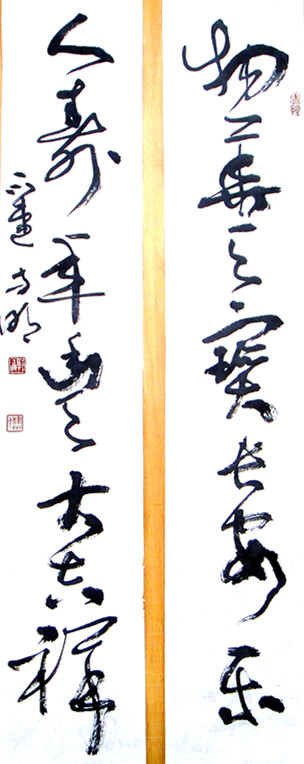 物華天寶長安樂
人壽年豐大吉祥